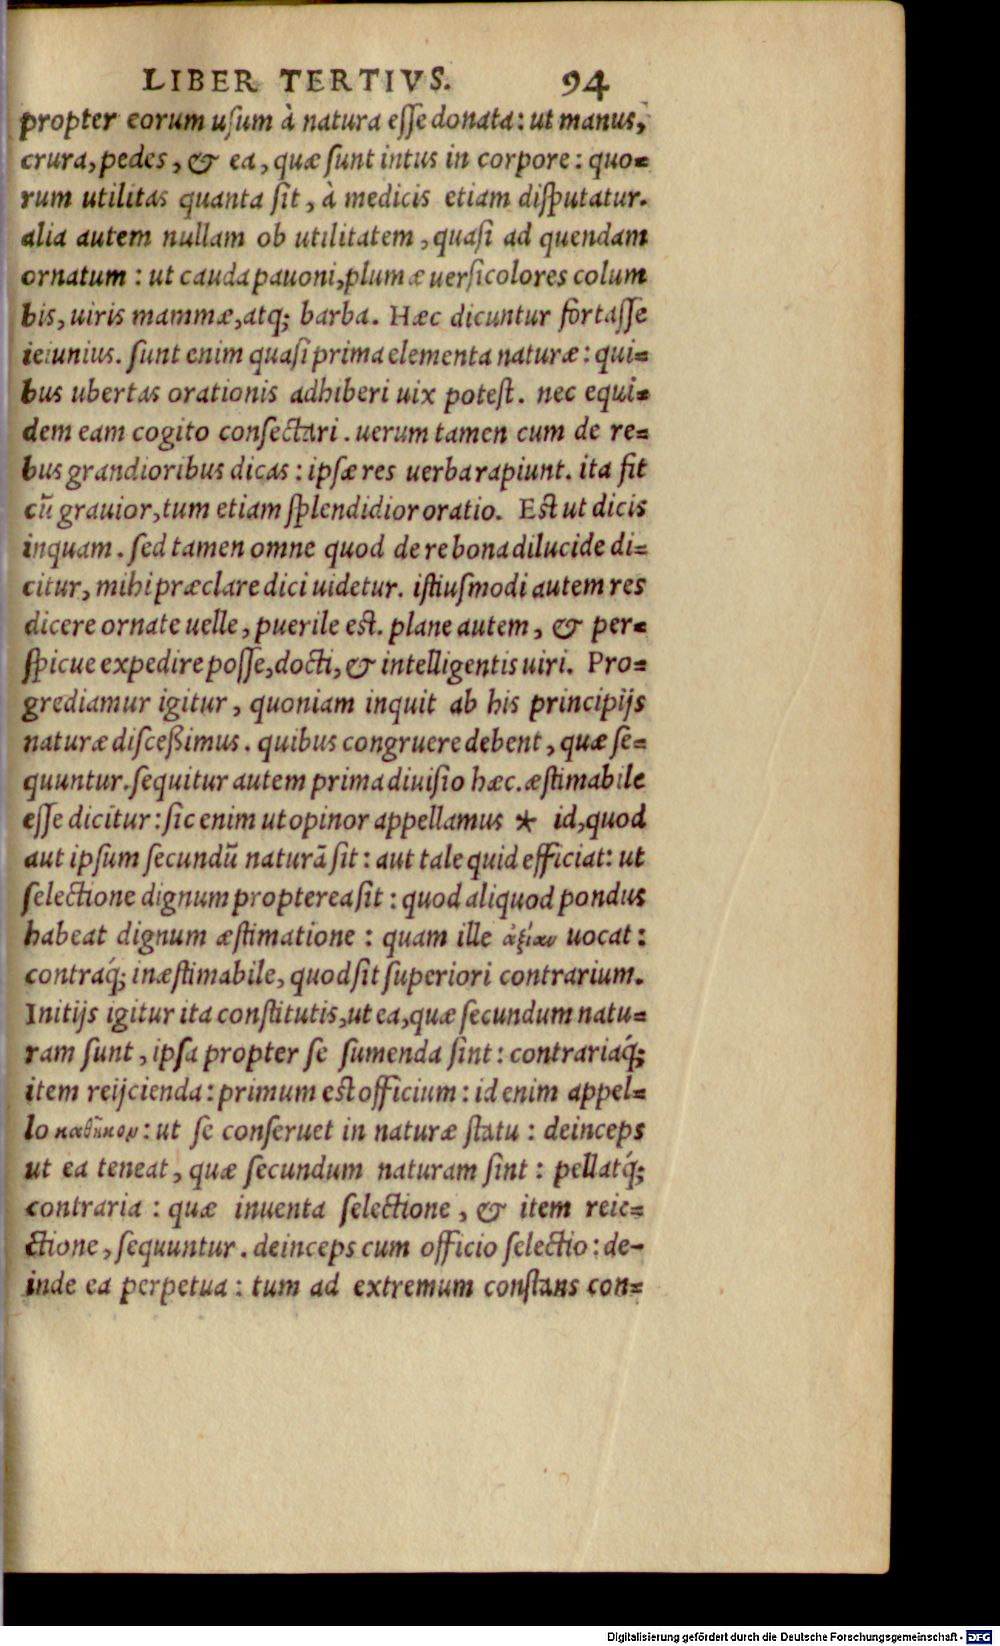 LIBER TERTIVS. 94
propter eorum uſum à natura eſſe donata: ut manus,
crura, pedes, & ea, quæ ſunt intus in corpore: quo=
rum utilitas quanta ſit, à medicis etiam diſputatur.
alia autem nullam ob utilitatem, quaſi ad quendam
ornatum: ut cauda pauoni, plumæ uerſicolores colum
bis, uiris mammæ, atq; barba. Hæc dicuntur fortaſſe
ieiunius. ſunt enim quaſi prima elementa naturæ: qui=
bus ubertas orationis adhiberi uix poteſt. nec equi=
dem eam cogito conſectari. uerum tamen cum de re=
bus grandioribus dicas: ipſæ res uerba rapiunt. ita fit
cũ grauior, tum etiam ſplendidior oratio. Eſt ut dicis
inquam. ſed tamen omne quod de re bona dilucide di=
citur, mihi præclare dici uidetur. iſtiuſmodi autem res
dicere ornate uelle, puerile eſt. plane autem, & per=
ſpicue expedire poſſe, docti, & intelligentis uiri. Pro=
grediamur igitur, quoniam inquit ab his principijs
naturæ diſceßimus. quibus congruere debent, quæ ſe=
quuntur. ſequitur autem prima diuiſio hæc. æſtimabile
eſſe dicitur: ſic enim ut opinor appellamus * id, quod
aut ipſum ſecundũ naturã ſit: aut tale quid efficiat: ut
ſelectione dignum propterea ſit: quod aliquod pondus
habeat dignum æſtimatione: quam ille ἀξίαν uocat:
contraq́; inæſtimabile, quod ſit ſuperiori contrarium.
Initijs igitur ita conſtitutis, ut ea, quæ ſecundum natu=
ram ſunt, ipſa propter ſe ſumenda ſint: contrariaq́;
item reijcienda: primum eſt officium: id enim appel=
lo καθῆκον: ut ſe conſeruet in naturæ ſtatu: deinceps
ut ea teneat, quæ ſecundum naturam ſint: pellatq́;
contraria: quæ inuenta ſelectione, & item reie=
ctione, ſequuntur. deinceps cum officio ſelectio: de-
inde ea perpetua: tum ad extremum conſtans con=
Digitalisierung gefördert durch die Deutsche Forschungsgemeinschaft - DFG